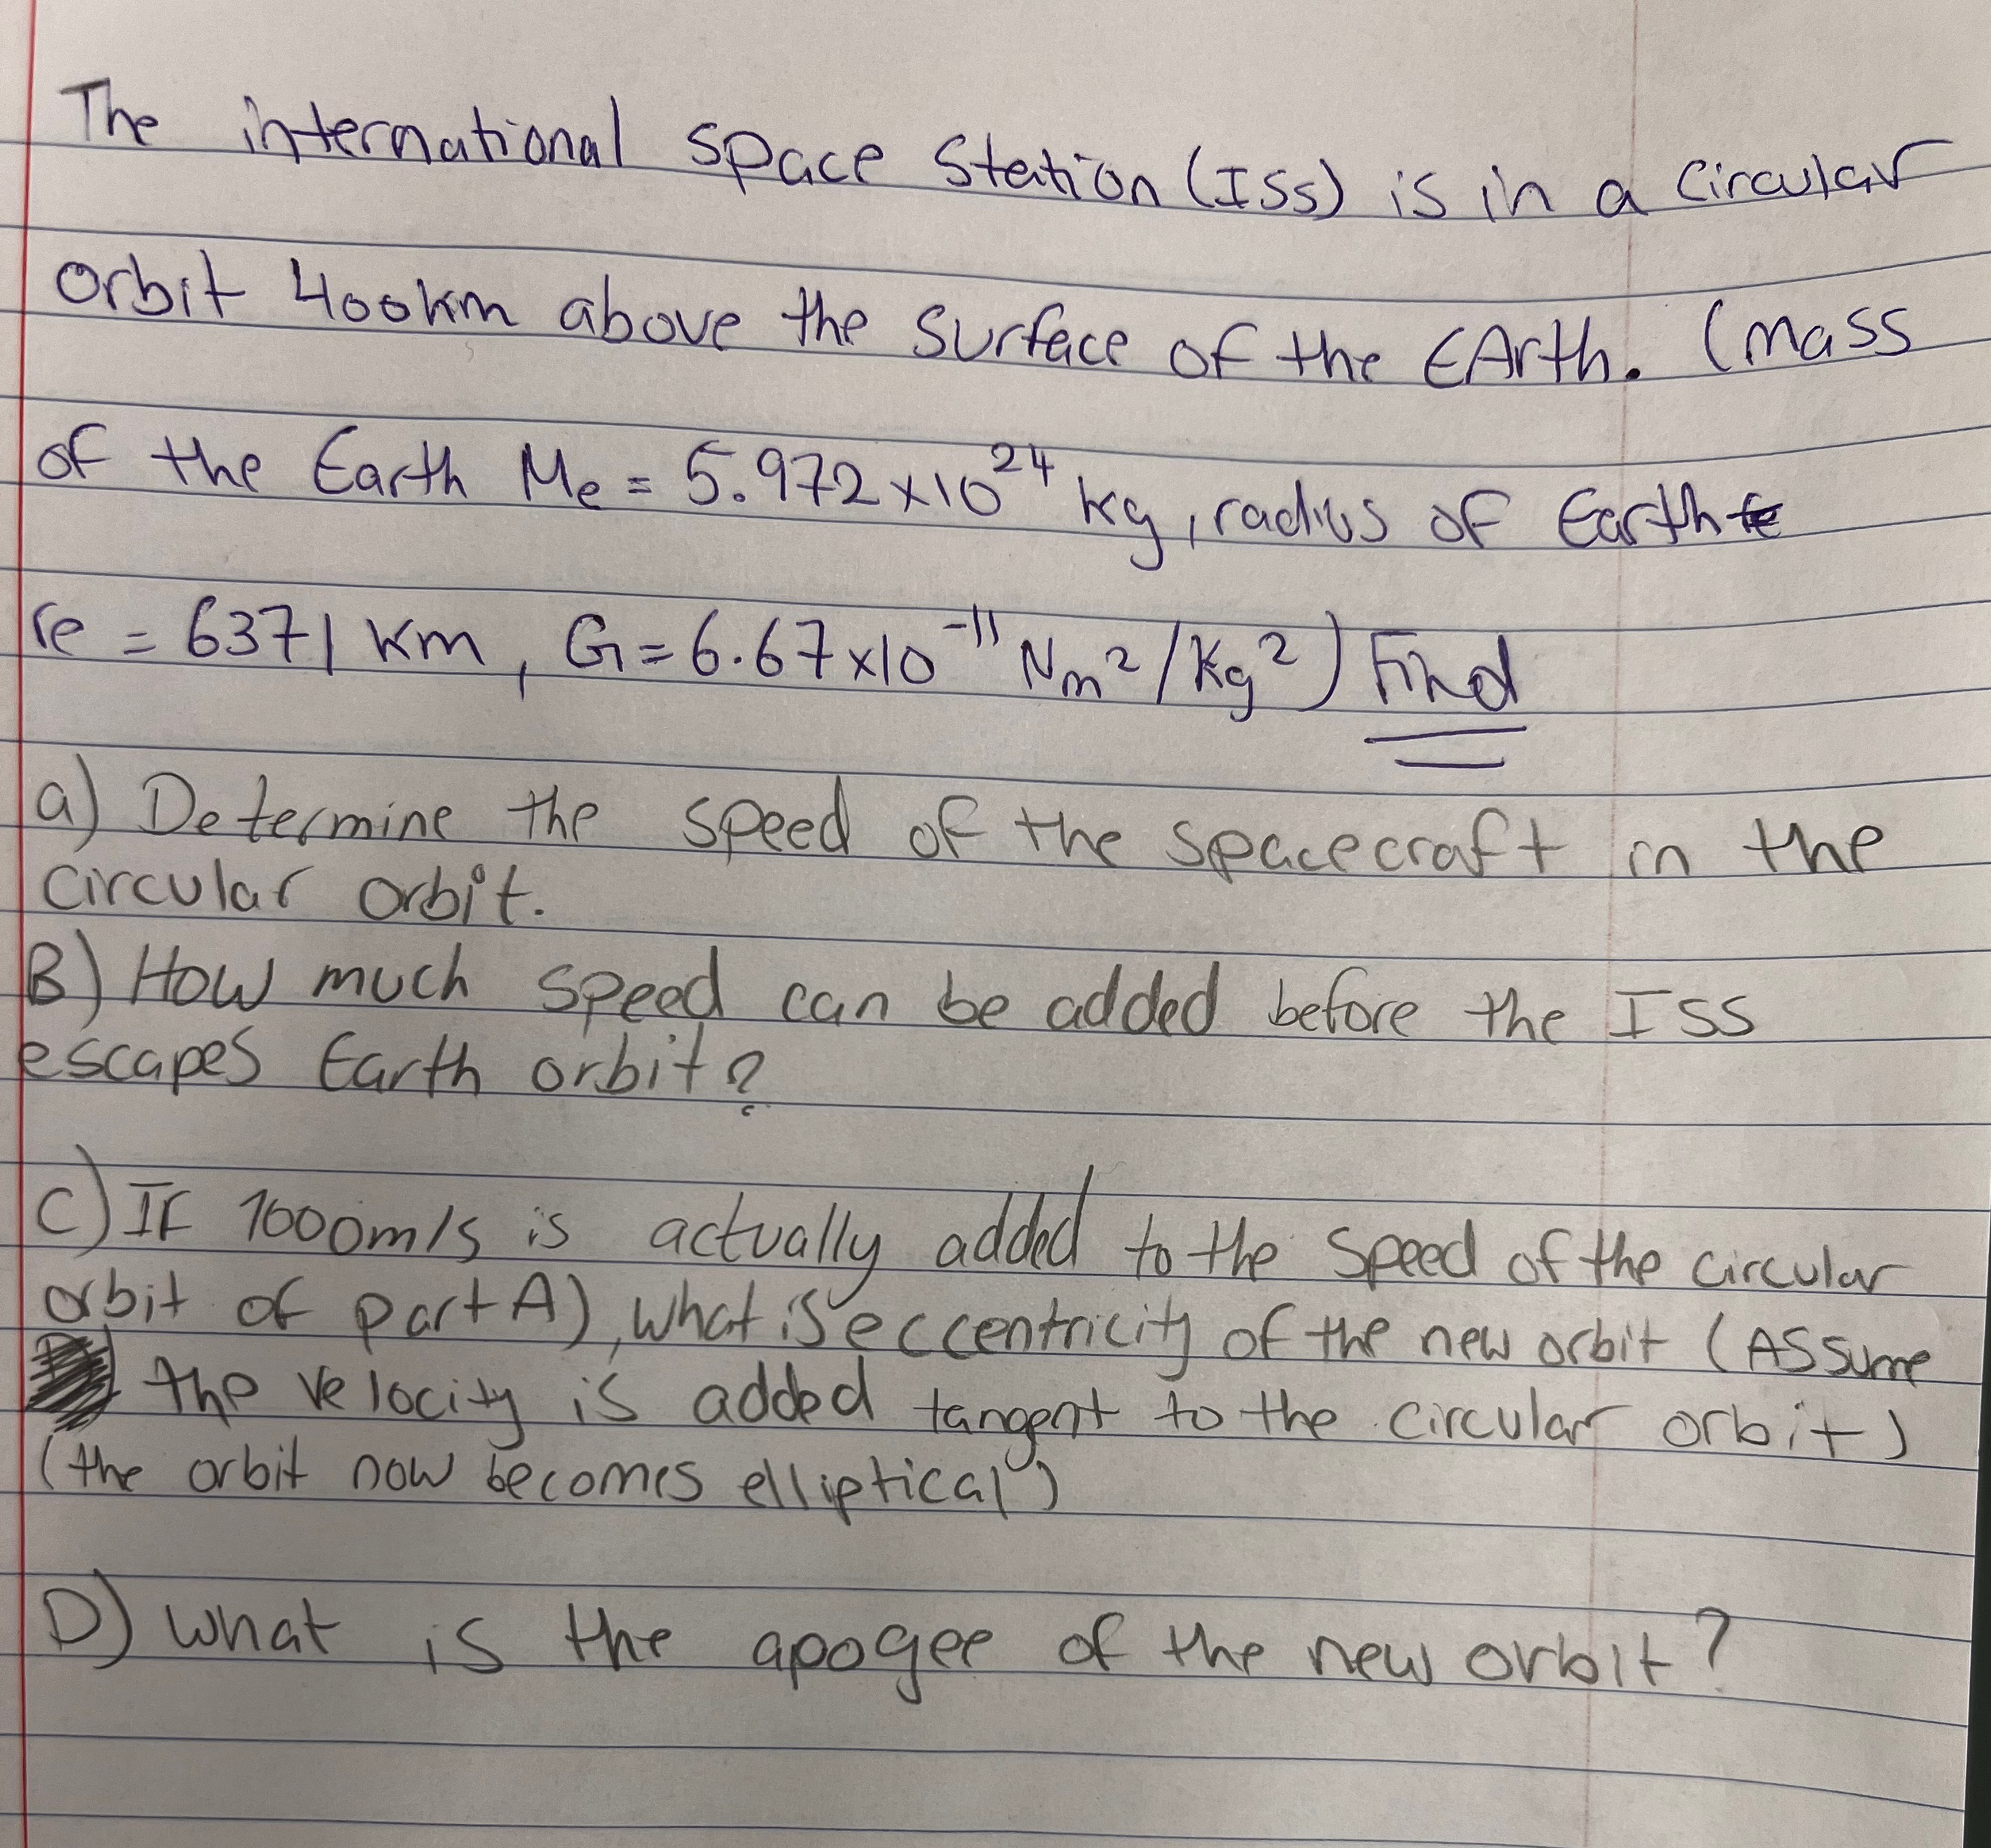 The international space Station (ISS) is in a circular
orbit 400km above the surface of the EArth. (mass
of the Earth Me = 5.972 x10²⁴ kg, radius of Earth
re = 6371 km, G = 6.67x10⁻¹¹ Nm²/kg²) Find
a) Determine the speed of the spacecraft in the
circular orbit.
B) How much speed can be added before the ISS
escapes Earth orbit?
C) If 1000m/s is actually added to the speed of the circular
orbit of part A), what is eccentricity of the new orbit (Assume
the velocity is added tangent to the circular orbit)
(the orbit now becomes elliptical)
D) what is the apogee of the new orbit?